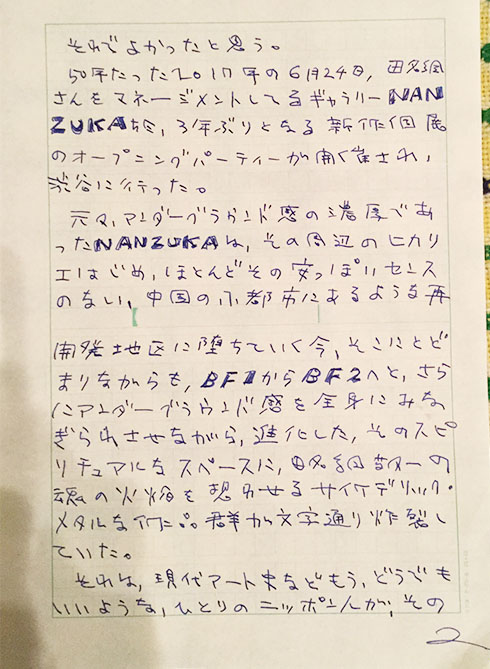 それでよかったと思う。
50年たった2017年の6月24日，田名網
さんをマネージメントしてるギャラリーNAN
ZUKAで，3年ぶりとなる新作個展
のオープニングパーティーが開催され，
渋谷に行った。
元々，アンダーグラウンド感の濃厚であ
ったNANZUKAは，その周辺のヒカリ
エはじめ，ほとんどその安っぽいセンス
のない，中国の小都市にあるような再
開発地区に堕ちていく今，そこにとど
まりながらも，BF1からBF2へと，さら
にアンダーグラウンド感を全身にみな
ぎられさせながら，進化した，そのスピ
リチュアルなスペースに，田名網敬一の
魂の火焔を想わせるサイケデリック・
メタルな作品群が文字通り炸裂し
ていた。
それは，現代アート史などもう，どうでも
いいような，ひとりのニッポン人が，その
2